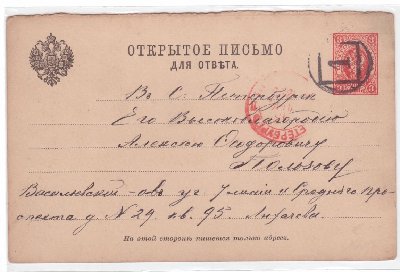 ОТКРЫТОЕ ПИСЬМО
ДЛЯ ОТВѢТА.
Въ С. Петербургъ
Его Высокоблагородію
Алексѣю
Васильевский - овъ уг 7 линіи и Средняго про-
спекта д. N 29. кв. 95.
На этой сторонѣ пишется только адресъ.
3
3